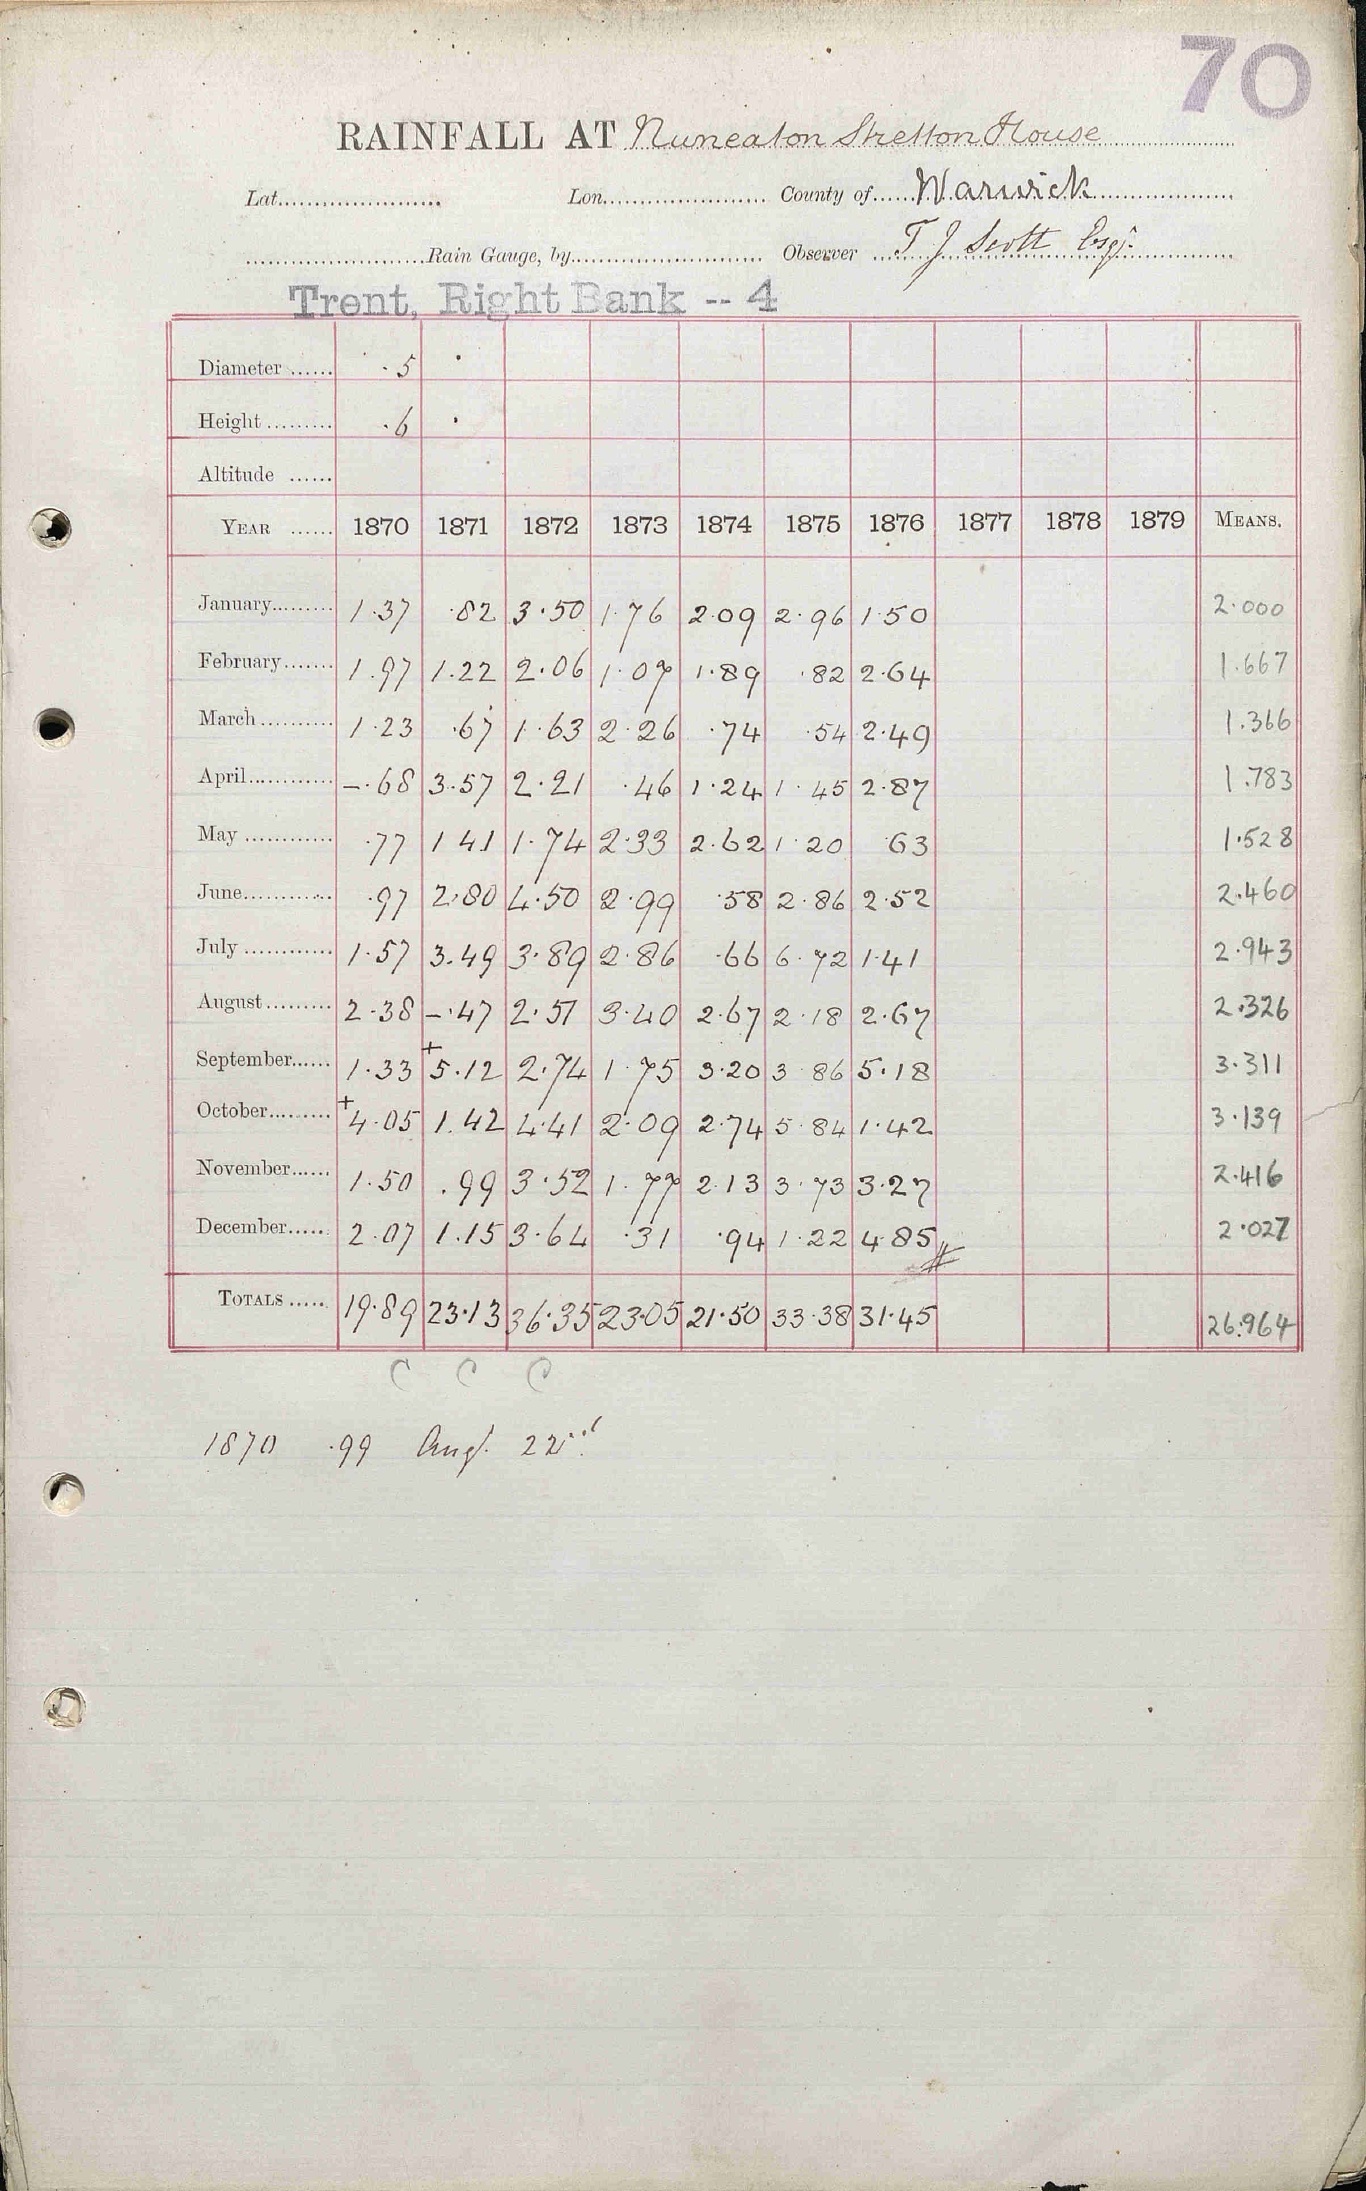 70
RAINFALL AT Nuneaton Stretton House
Lat. Lon. County of Warwick
Rain Gauge, by Observer T J Scott Esqr.
Trent, Right Bank -- 4
Diameter ...... .5
Height ......... .6
Altitude ......
YEAR ...... 1870 1871 1872 1873 1874 1875 1876 1877 1878 1879 MEANS.
January......... 1.37 .82 3.50 1.76 2.09 2.96 1.50 2.000
February....... 1.97 1.22 2.06 1.07 1.89 .82 2.64 1.667
March .......... 1.23 .67 1.63 2.26 .74 .54 2.49 1.366
April............ -.68 3.57 2.21 .46 1.24 1.45 2.87 1.783
May ............ .77 1 41 1.74 2.33 2.62 1.20 .63 1.528
June............. .97 2.80 4.50 2.99 .58 2.86 2.52 2.460
July ............ 1.57 3.49 3.89 2.86 .66 6.72 1.41 2.943
August......... 2.38 -.47 2.51 3.40 2.67 2.18 2.67 2.326
September...... 1.33 +5.12 2.74 1.75 3.20 3 86 5.18 3.311
October......... +4.05 1.42 4.41 2.09 2.74 5.84 1.42 3.139
November...... 1.50 .99 3.52 1.77 2.13 3.73 3.27 2.416
December..... 2.07 1.15 3.64 .31 .94 1.22 4.85 2.027
TOTALS ..... 19.89 23.13 36.35 23.05 21.50 33.38 31.45 26.964
C C C
1870 .99 Augt. 22nd